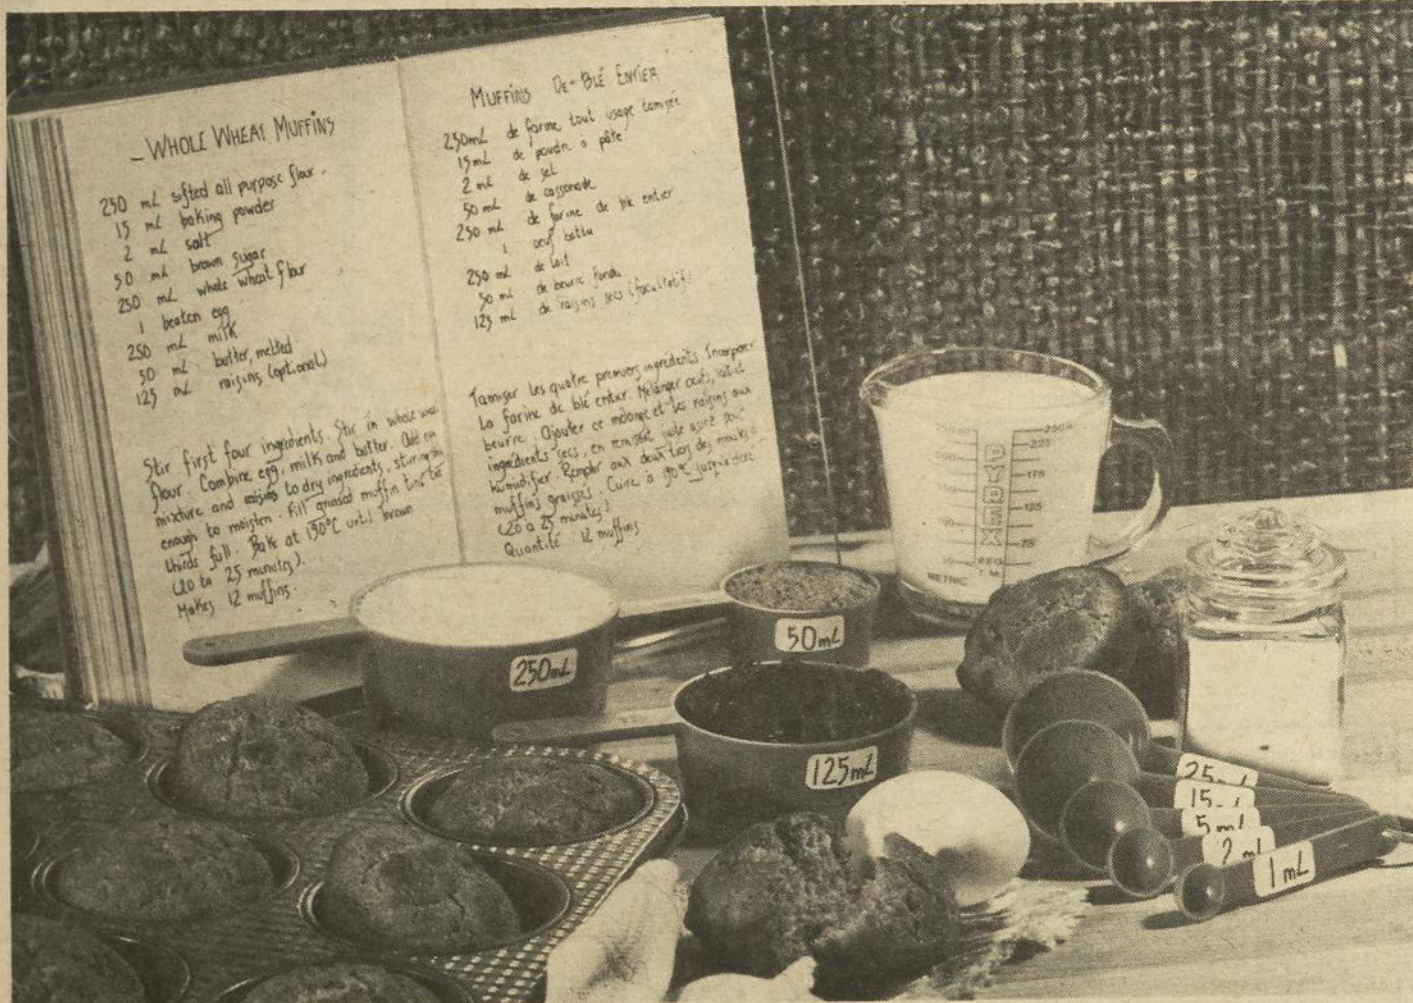 WHOLE WHEAT MUFFINS
250 mL sifted all purpose flour.
15 mL baking powder
2 mL salt
50 mL brown sugar
250 mL whole wheat flour
1 beaten egg
250 mL milk
50 mL butter, melted
125 mL raisins (optional)
Stir first four ingredients. Stir in whole
flour. Combine egg, milk and butter. Add
mixture and raisins to dry ingredients, stirring
enough to moisten. Fill greased muffin tins
thirds full. Bake at 190°C until brown
(20 to 25 minutes).
Makes 12 muffins.
MUFFINS DE BLÉ ENTIER
250 mL de farine tout usage tamisée
15 mL de poudre à pâte
2 mL de sel
50 mL de cassonade
250 mL de farine de blé entier
1 oeuf battu
250 mL de lait
50 mL de beurre fondu
125 mL de raisins secs (facultatif)
Tamiser les quatre premiers ingrédients. Incorporer
la farine de blé entier. Mélanger oeufs, lait et
beurre. Ajouter ce mélange et les raisins aux
ingrédients secs, en remuant juste assez pour
humidifier. Remplir aux deux tiers des moules à
muffins graissés. Cuire à 190°C jusqu'à
(20 à 25 minutes).
Quantité: 12 muffins
250mL
50mL
125mL
PYREX
250
225
175
125
75
200
100
METRIC
25mL
15
5mL
2mL
1mL